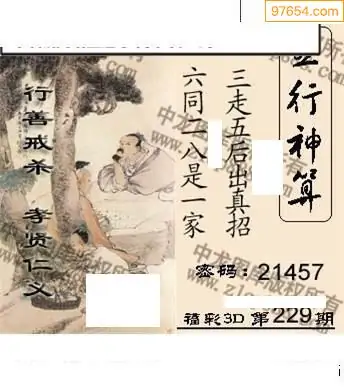 97654.com
行神算
三走五后出真招
六同二八是一家
行善戒杀 孝贤仁义
密码：21457
福彩3D 第229期
中龙图库版权所有